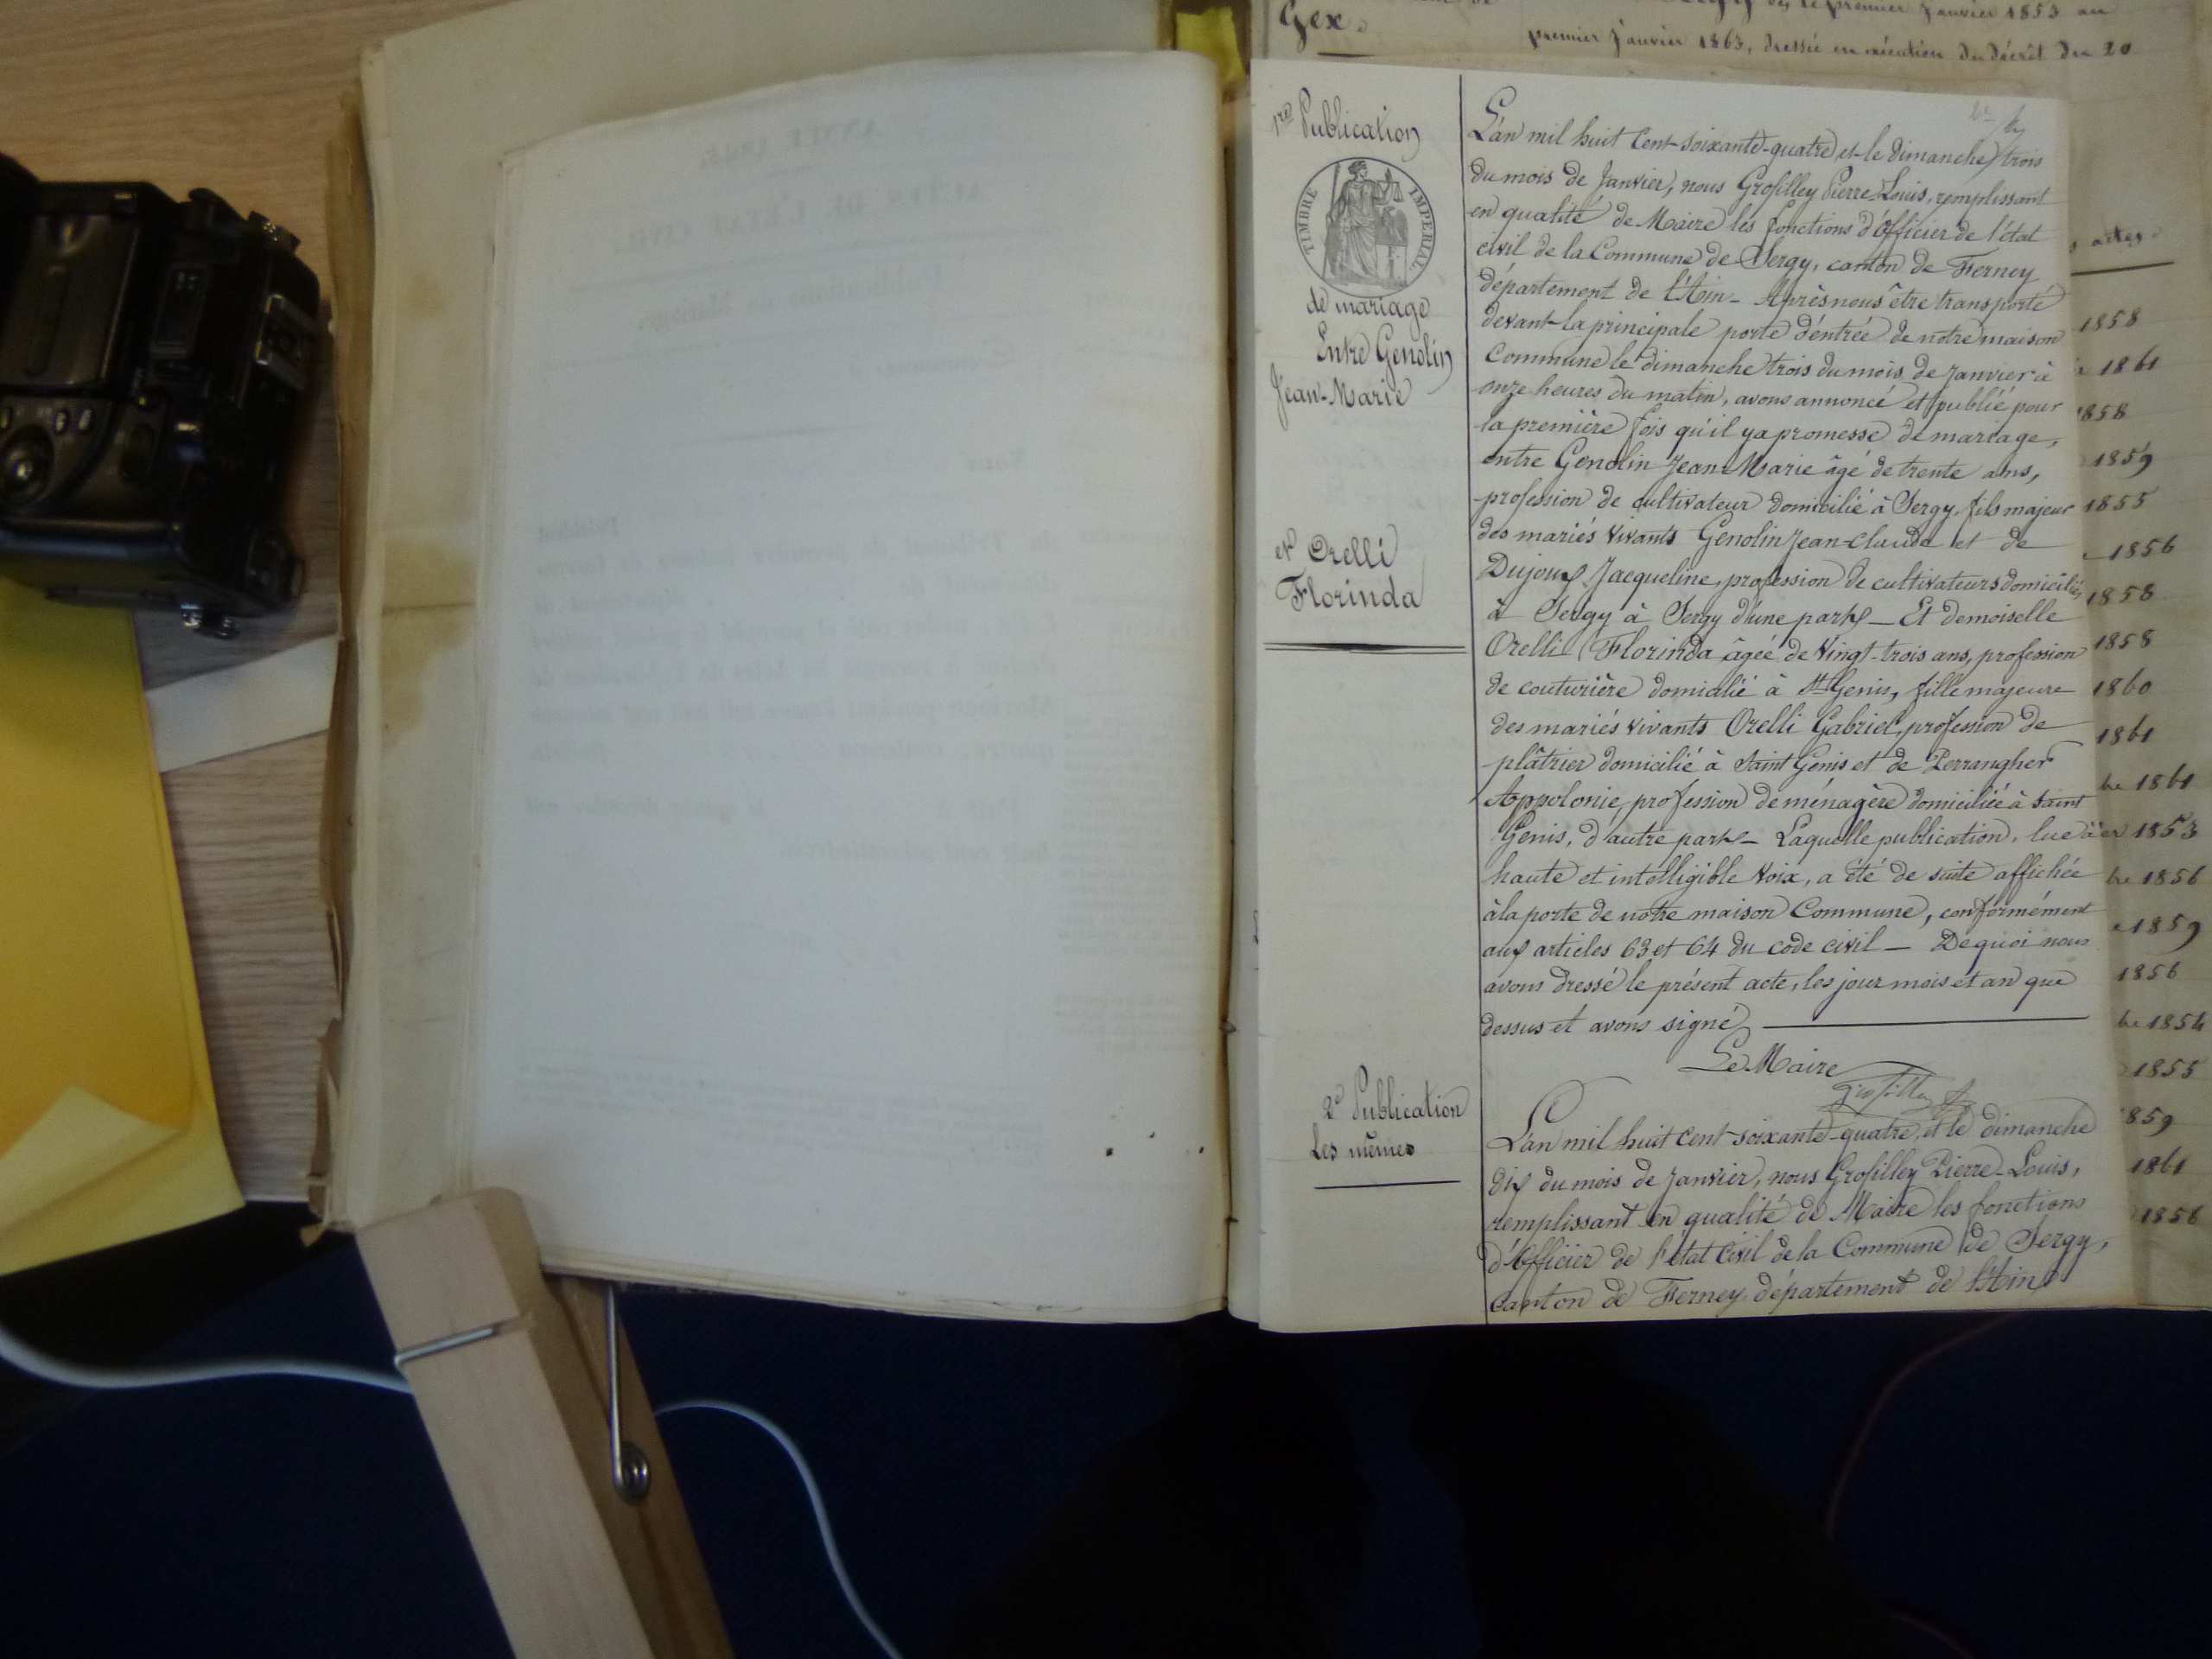 Gex.
premier Janvier 1853 au
premier Janvier 1863, dressée en exécution du décret du 20
1re Publication
TIMBRE IMPERIAL
de mariage
Entre Genolin
Jean-Marie
et Orelli
Florinda
L'an mil huit Cent-soixante-quatre et le dimanche trois
du mois de Janvier, nous Grosfilley Pierre-Louis, remplissant
en qualité de Maire les fonctions d'Officier de l'état
civil de la Commune de Sergy, canton de Ferney
département de l'Ain - Après nous être transporté
devant la principale porte d'entrée de notre maison
Commune le dimanche trois du mois de Janvier à
onze heures du matin, avons annoncé et publié pour
la première fois qu'il y a promesse de mariage,
entre Genolin Jean-Marie âgé de trente ans,
profession de cultivateur domicilié à Sergy, fils majeur
des mariés vivants Genolin Jean-Claude et de
Dujoux Jacqueline, profession de cultivateurs domiciliés
à Sergy à Sergy d'une part - Et demoiselle
Orelli Florinda âgée de vingt-trois ans, profession
de couturière domicilié à St Genis, fille majeure
des mariés vivants Orelli Gabriel, profession de
plâtrier domicilié à Saint Genis et de Perrangher
Appolonie, profession de ménagère domiciliée à Saint
Genis, d'autre part - Laquelle publication, lue à
haute et intelligible voix, a été de suite affichée
à la porte de notre maison Commune, conformément
aux articles 63 et 64 du code civil - De quoi nous
avons dressé le présent acte, les jour mois et an que
dessus et avons signé
Le Maire
2e Publication
Les mêmes
L'an mil huit cent soixante-quatre, et le dimanche
dix du mois de Janvier, nous Grosfilley Pierre-Louis,
remplissant en qualité de Maire les fonctions
d'Officier de l'état Civil de la Commune de Sergy,
canton de Ferney département de l'Ain
actes
1858
1861
1858
1859
1855
1856
1858
1858
1860
1861
bre 1861
er 1853
bre 1856
1859
1856
bre 1854
1855
1859
1861
1856